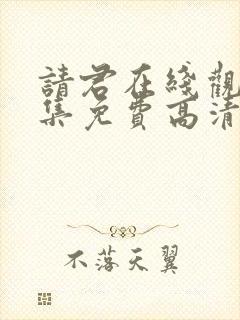 請君在綫觀
集免費高清
不落天翼